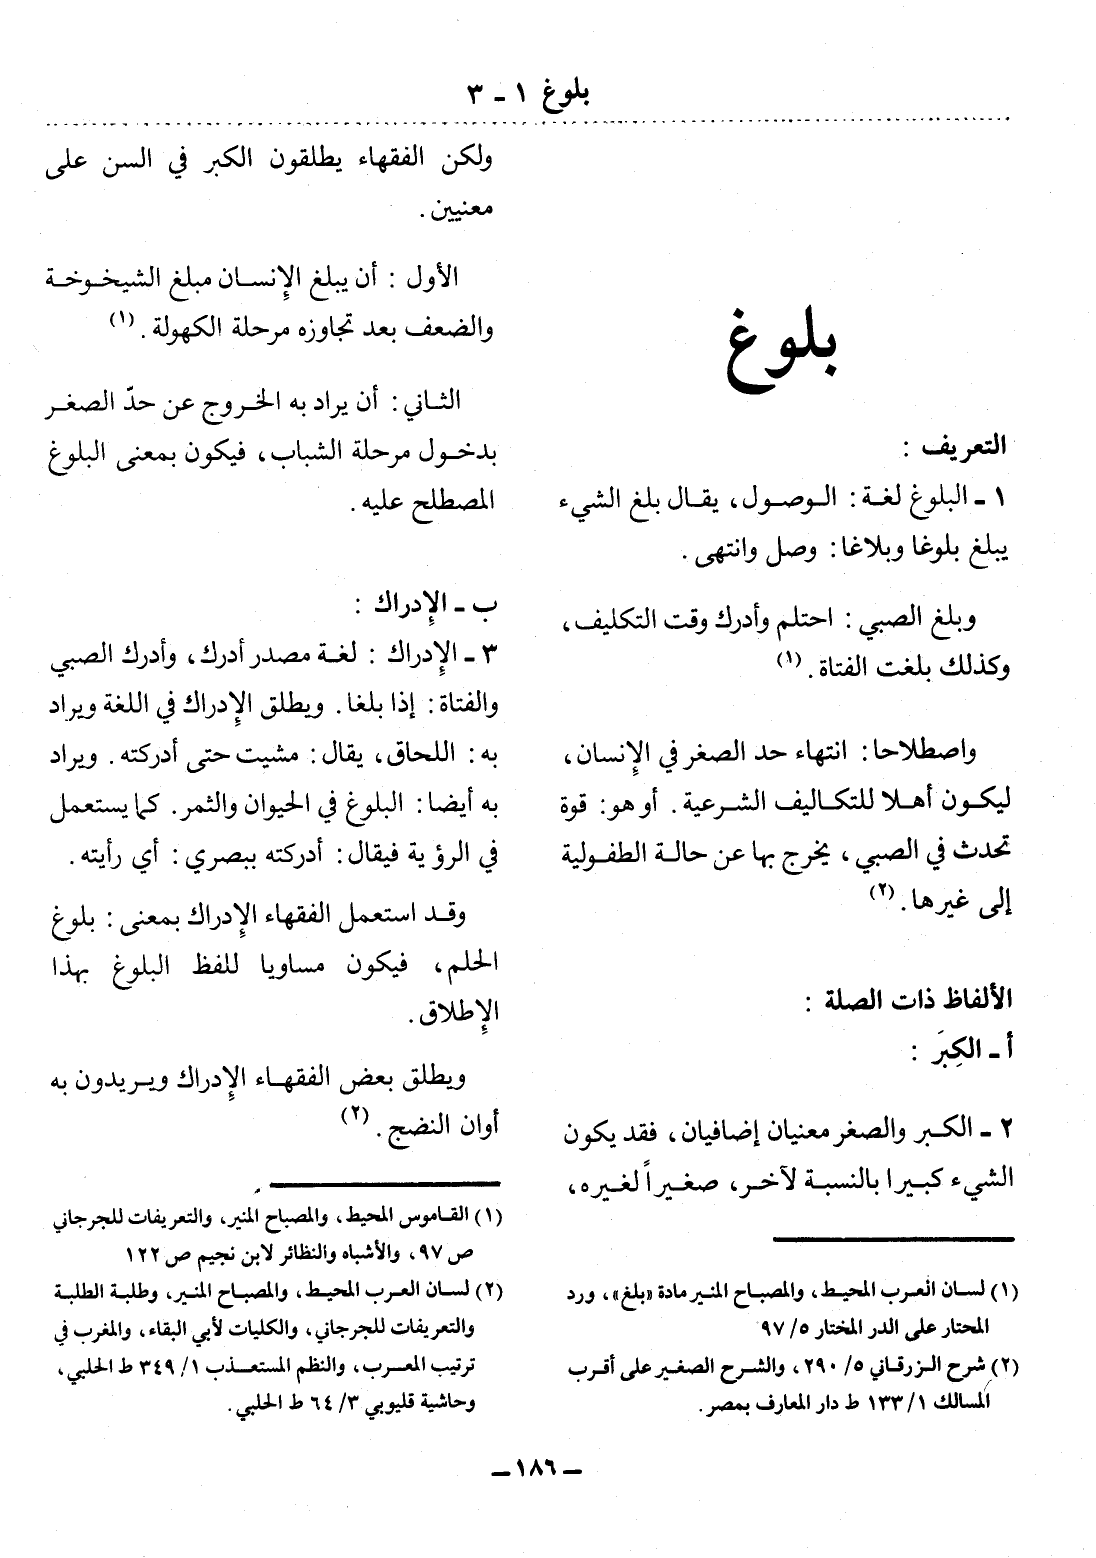 بلوغ ١ - ٣
بلوغ
التعريف :
١ - البلوغ لغة : الوصول ، يقال بلغ الشيء
يبلغ بلوغا وبلاغا : وصل وانتهى .
وبلغ الصبي : احتلم وأدرك وقت التكليف ،
وكذلك بلغت الفتاة . (١)
واصطلاحا : انتهاء حد الصغر في الإنسان ،
ليكون أهلا للتكاليف الشرعية . أو هو : قوة
تحدث في الصبي ، يخرج بها عن حالة الطفولية
إلى غيرها . (٢)
الألفاظ ذات الصلة :
أ - الكِبَر :
٢ - الكبر والصغر معنيان إضافيان ، فقد يكون
الشيء كبيرا بالنسبة لآخر ، صغيراً لغيره ،
(١) لسان العرب المحيط ، والمصباح المنير مادة «بلغ» ، ورد
المحتار على الدر المختار ٥/ ٩٧
(٢) شرح الزرقاني ٥/ ٢٩٠ ، والشرح الصغير على أقرب
المسالك ١/ ١٣٣ ط دار المعارف بمصر .
ولكن الفقهاء يطلقون الكبر في السن على
معنيين .
الأول : أن يبلغ الإنسان مبلغ الشيخوخة
والضعف بعد تجاوزه مرحلة الكهولة . (١)
الثاني : أن يراد به الخروج عن حدّ الصغر
بدخول مرحلة الشباب ، فيكون بمعنى البلوغ
المصطلح عليه .
ب - الإدراك :
٣ - الإدراك : لغة مصدر أدرك ، وأدرك الصبي
والفتاة : إذا بلغا . ويطلق الإدراك في اللغة ويراد
به : اللحاق ، يقال : مشيت حتى أدركته . ويراد
به أيضا : البلوغ في الحيوان والثمر . كما يستعمل
في الرؤية فيقال : أدركته ببصري : أي رأيته .
وقد استعمل الفقهاء الإدراك بمعنى : بلوغ
الحلم ، فيكون مساويا للفظ البلوغ بهذا
الإطلاق .
ويطلق بعض الفقهاء الإدراك ويريدون به
أوان النضج . (٢)
(١) القاموس المحيط ، والمصباح المنير ، والتعريفات للجرجاني
ص ٩٧ ، والأشباه والنظائر لابن نجيم ص ١٢٢
(٢) لسان العرب المحيط ، والمصباح المنير ، وطلبة الطلبة
والتعريفات للجرجاني ، والكليات لأبي البقاء ، والمغرب في
ترتيب المعرب ، والنظم المستعذب ١/ ٣٤٩ ط الحلبي ،
وحاشية قليوبي ٣/ ٦٤ ط الحلبي .
- ١٨٦ -